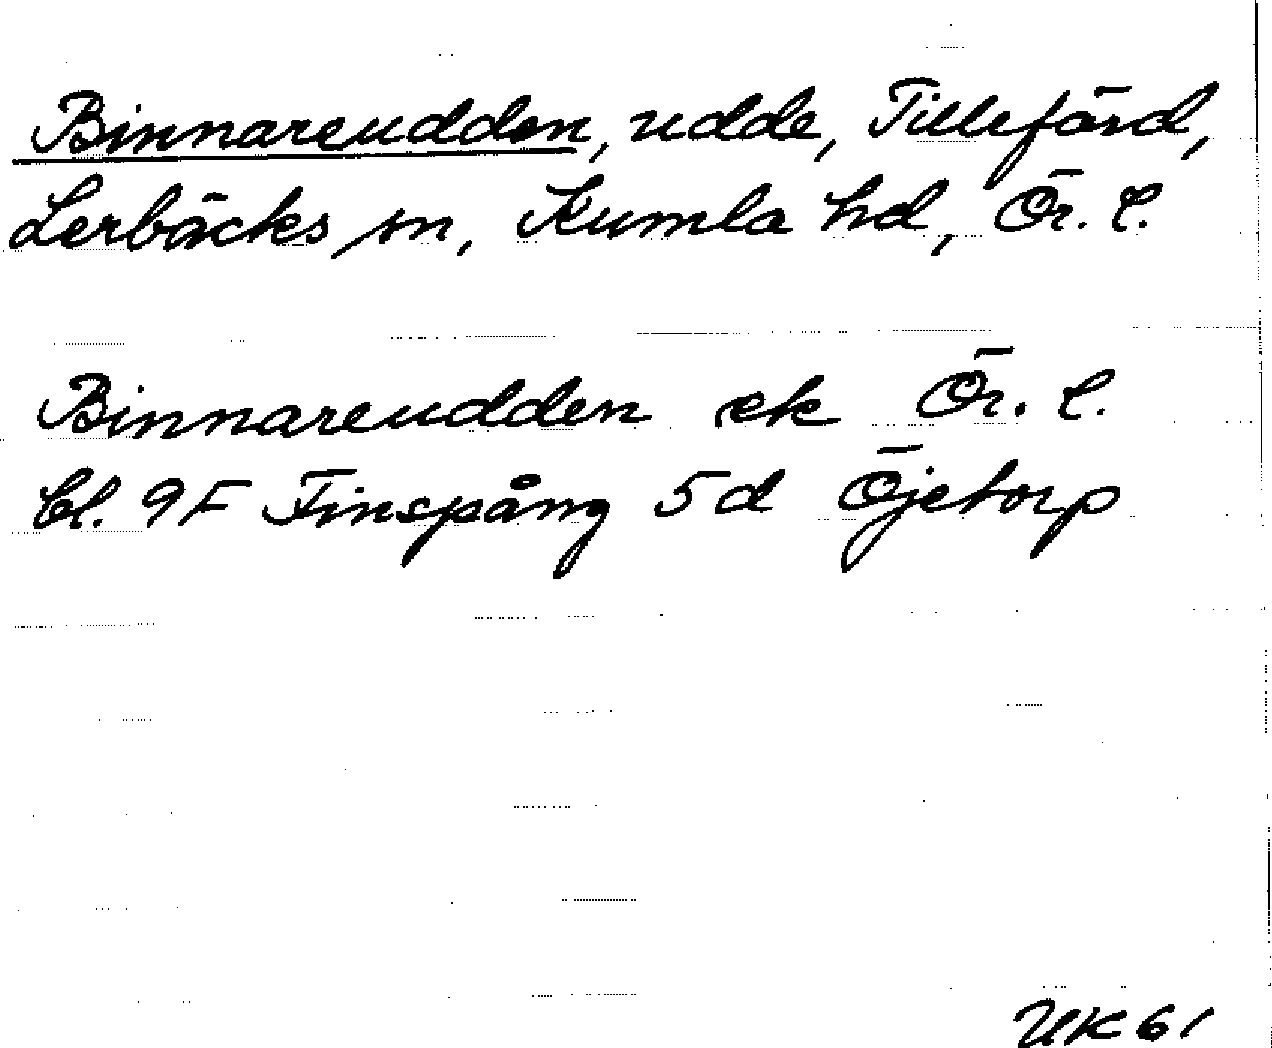 Binnareudden, udde, Tillefärd,
Lerbäcks sn, Kumla hd, Ör. l.
Binnareudden ek Ör. l.
bl. 9F Finspång 5d Öjetorp
UK 61